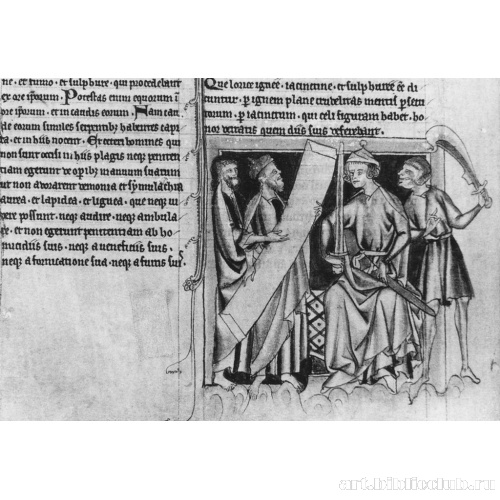 ne · et fumo · et sulphure · qui procedebant
ex ore ipsorum · Potestas enim equorum ī
ore ipsorum · et in caudis eorum · Nam cau
de eorum similes serpentibus habentes capi
ta · et in hiis nocent · Et ceteri homines qui
non sunt occisi in hiis plagis neqꝫ peniten
tiam egerunt de opibꝫ manuum suarum
ut non adorarent demonia et symulachra
aurea · et lapidea · et lignea · que neqꝫ vi
dere possunt · neqꝫ audire · neqꝫ ambula
re · et non egerunt penitentiam ab ho
micidiis suis · neqꝫ a veneficiis suis ·
neqꝫ a fornicatione sua · neqꝫ a furtis suis
Que lorice ignee · iacinctine · et sulphuree ēē di
cuntur · ꝑ ignem plane crudelitas mentis ꝑsecu
torum · ꝑ iacinctum · qui celi figuram habet · ho
nor deitatis quem diis suis referebant.
art.biblioclub.ru